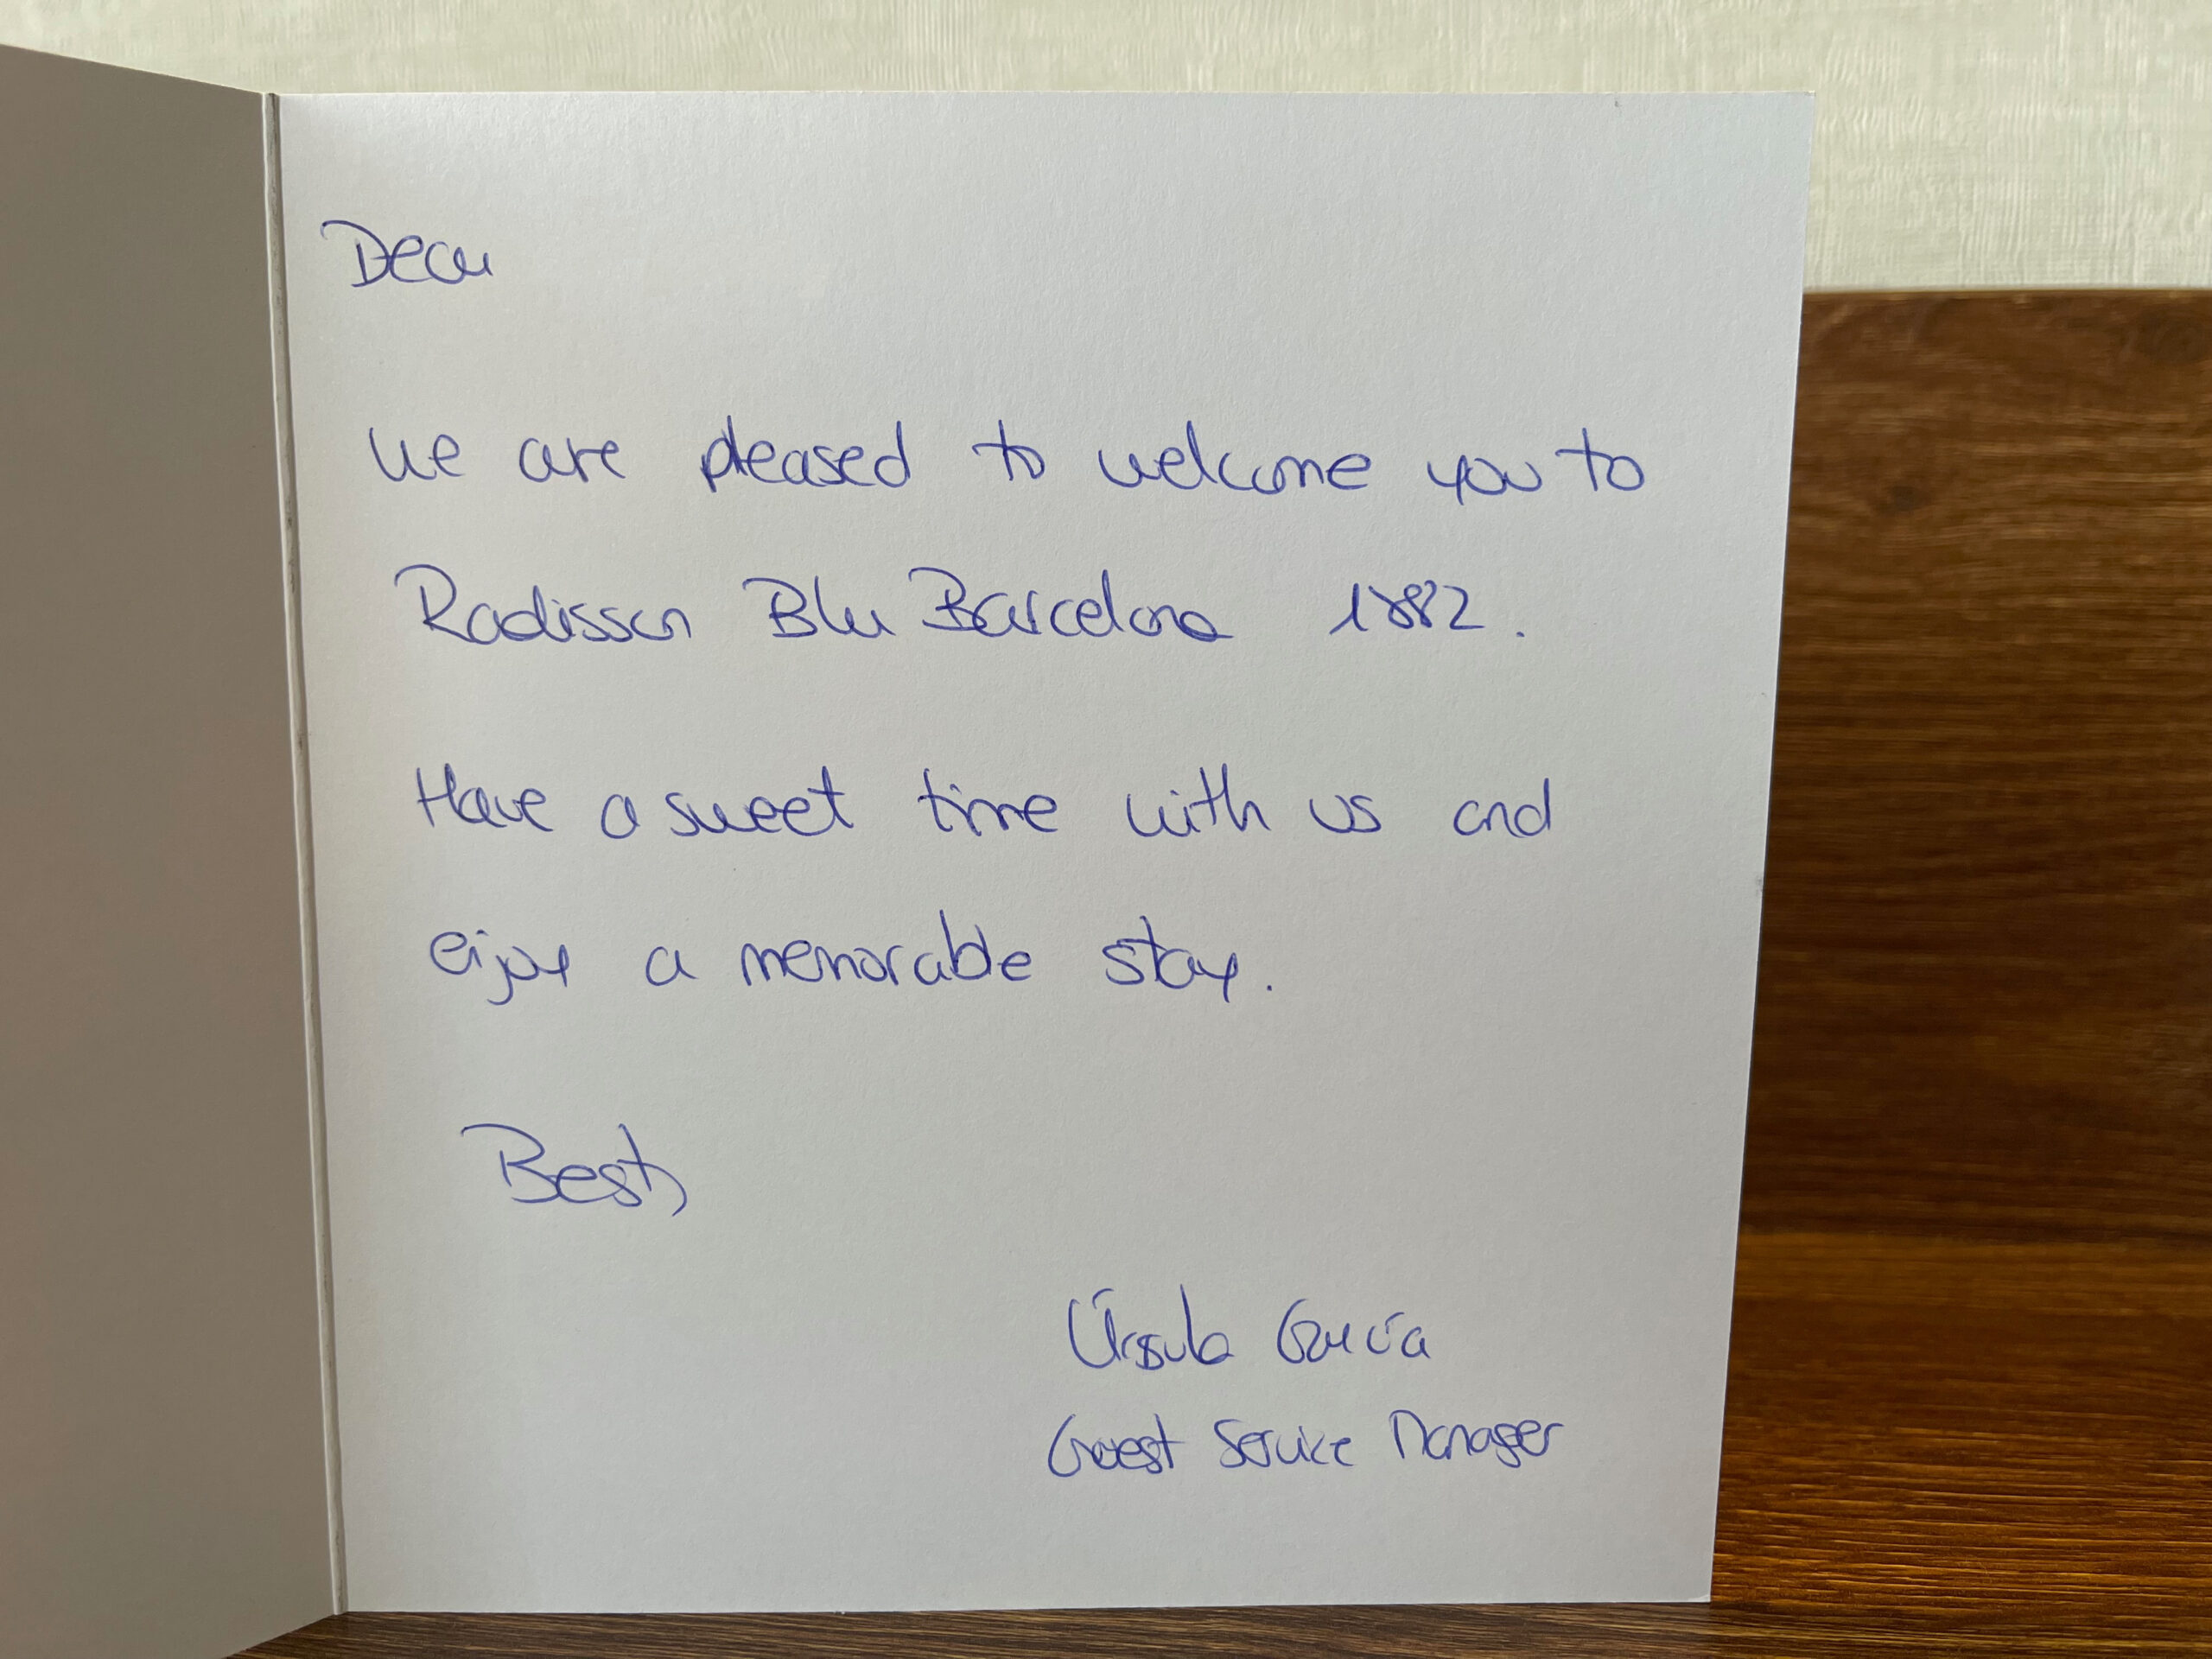 Dear
We are pleased to welcome you to
Radisson Blu Barcelona 1882.
Have a sweet time with us and
enjoy a memorable stay.
Best,
Úrsula García
Guest Service Manager